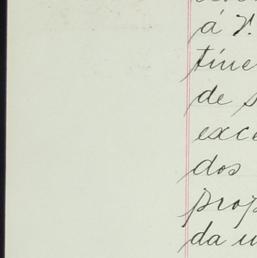 á V.
tine
de s
exce
dos
prop
da u